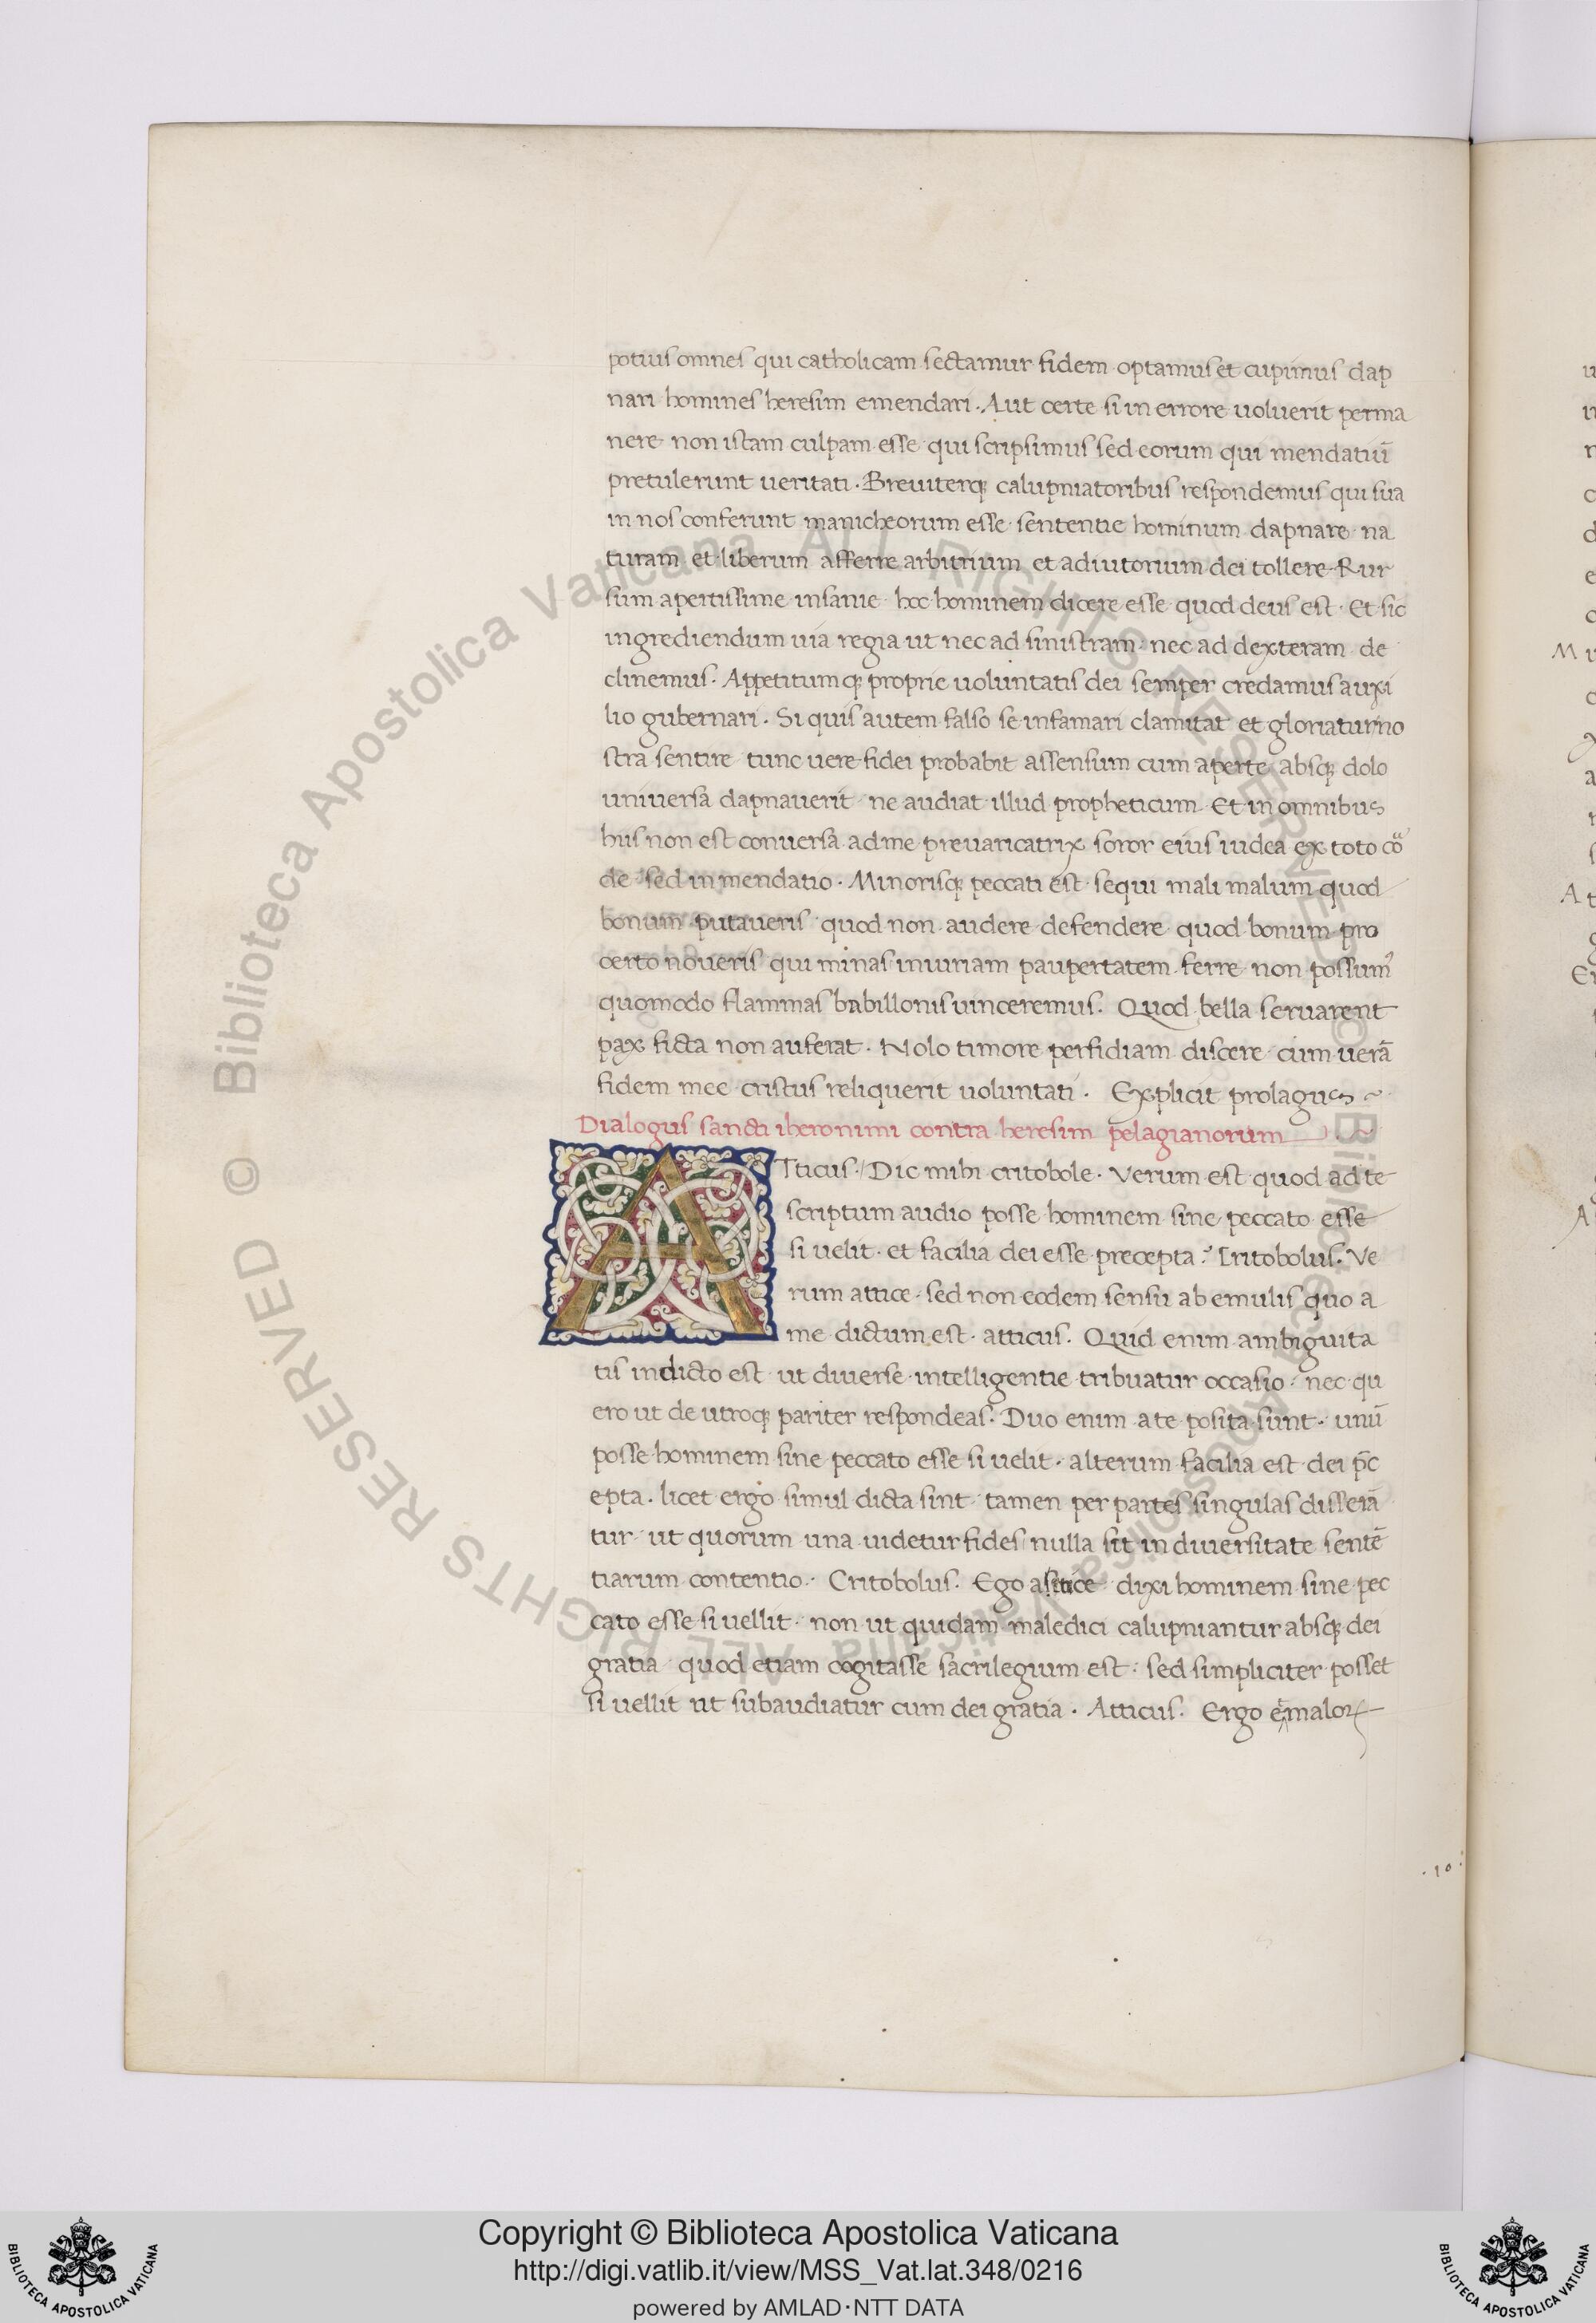 potius omnes qui catholicam sectamur fidem optamus et cupimus dap
nari homines heresim emendari. Aut certe si in errore uoluerit perma
nere non istam culpam esse qui scripsimus sed eorum qui mendatiū
pretulerunt ueritati. Breuiterq; calupniatoribus respondemus qui sua
in nos conferunt manicheorum esse sententie hominum dapnare na
turam et liberum afferre arbitrium et adiutorium dei tollere. Rur
sum apertissime insanie hoc hominem dicere esse quod deus est. Et sic
ingrediendum uia regia ut nec ad sinistram nec ad dexteram de
clinemus. Appetitumq; proprie uoluntatis dei semper credamus auxi
lio gubernari. Si quis autem falso se infamari clamitat et gloriatur no
stra sentire tunc uere fidei probabit assensum cum aperte absq; dolo
uniuersa dapnauerit ne audiat illud propheticum Et in omnibus
hus non est conuersa ad me preuaricatrix soror eius iudea ex toto
de sed in mendatio. Minorisq; peccati est sequi mali malum quod
bonum putaueris quod non audere defendere quod bonum pro
certo noueris qui minas iniuriam paupertatem ferre non possum⁹
quomodo flammas babillonis uinceremus. Quod bella seruarent
pax ficta non auferat. Nolo timore perfidiam discere cum uerā
fidem mee cristus reliquerit uoluntati. Explicit prolagus ~
Dialogus sancti iheronimi contra heresim pelagianorum
A Tticus. Dic mihi critobole. Verum est quod ad te
scriptum audio posse hominem sine peccato esse
si uelit. et facilia dei esse precepta? Critobolus. Ve
rum attice sed non eodem sensu ab emulis quo a
me dictum est. atticus. Quid enim ambiguita
tis in dicto est ut diuerse intelligentie tribuatur occasio. nec qu
ero ut de utroq; pariter respondeas. Duo enim a te posita sunt. unū
posse hominem sine peccato esse si uelit. alterum facilia est dei p̄c
epta. licet ergo simul dicta sint tamen per partes singulas disserā
tur ut quorum una uidetur fides nulla sit in diuersitate sentē
tiarum contentio. Critobolus. Ego dixi hominem sine pec
cato esse si uellit. non ut quidam maledici calupniantur absq; dei
gratia quod etiam cogitasse sacrilegium est: sed simpliciter posset
si uellit ut subaudiatur cum dei gratia. Atticus. Ergo maloꝝ
.10.
Copyright © Biblioteca Apostolica Vaticana
http://digi.vatlib.it/view/MSS_Vat.lat.348/0216
powered by AMLAD·NTT DATA
BIBLIOTECA APOSTOLICA VATICANA
BIBLIOTECA APOSTOLICA VATICANA
© Biblioteca Apostolica Vaticana ALL RIGHTS RESERVED
© Biblioteca Apostolica Vaticana ALL RIGHTS RESERVED